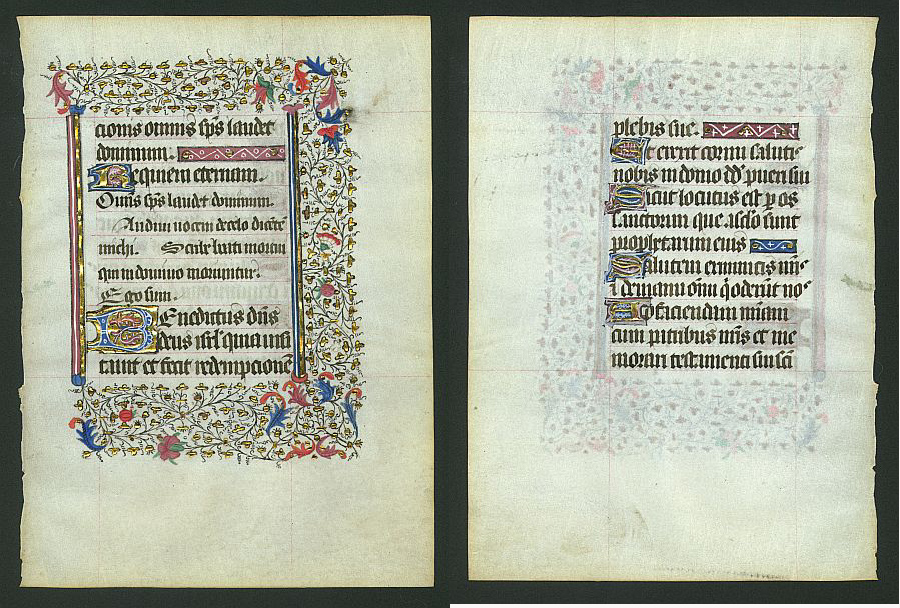 cionis omnis sps laudet
dominum.
Requiem eternam.
Omis sps laudet dominum.
Audiui uocem de celo dicente
michi. Scribe beati mortui
qui in domino moriuntur.
Ego sum.
Benedictus dns
deus isrl quia uisi
tauit et fecit redempcione
plebis sue.
Et erexit cornu salutis
nobis in domo dd pueri sui
Sicut locutus est p os
sanctorum que a sclo sunt
prophetarum eius
Salutem ex inimicis nris
i de manu oniu q oderut nos
Ad faciendam miam
cum patribus nris et me
morari testamenti sui sci